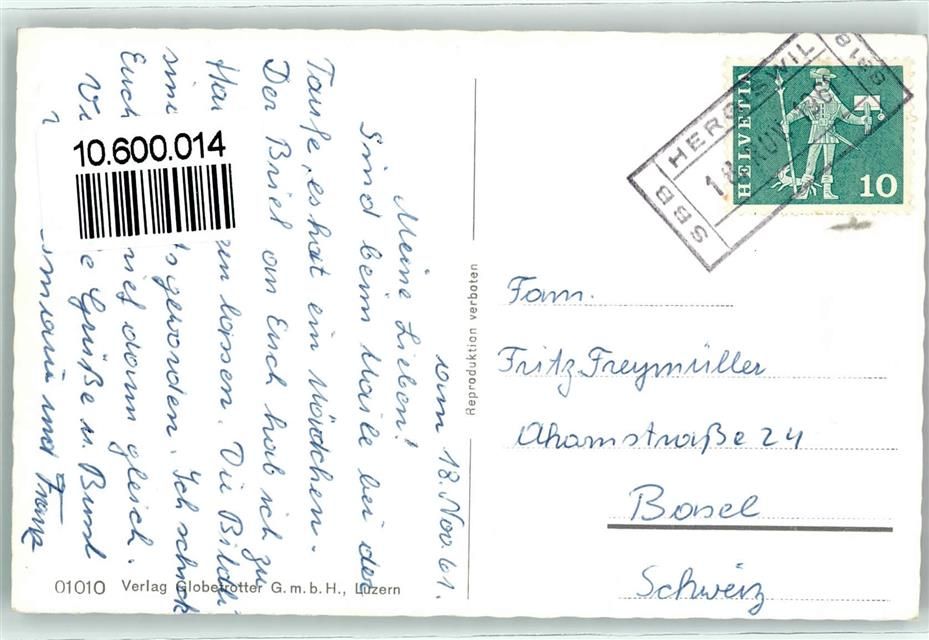 vom 18. Nov. 61.
Meine Lieben!
Sind beim Maile bei der
Taufe, es hat ein Mädchen.
Der Brief an Euch hab ich zu
lassen. Die Bilder
geworden. Ich schick
Euch dann gleich.
Grüße u. Bussl
und Franz
10.600.014
01010 Verlag Globetrotter G.m.b.H., Luzern
Reproduktion verboten
HELVETIA
10
SBB HERGISWIL
18. NOV. 196
Fam.
Fritz Freymüller
Ahornstraße 24
Basel
Schweiz